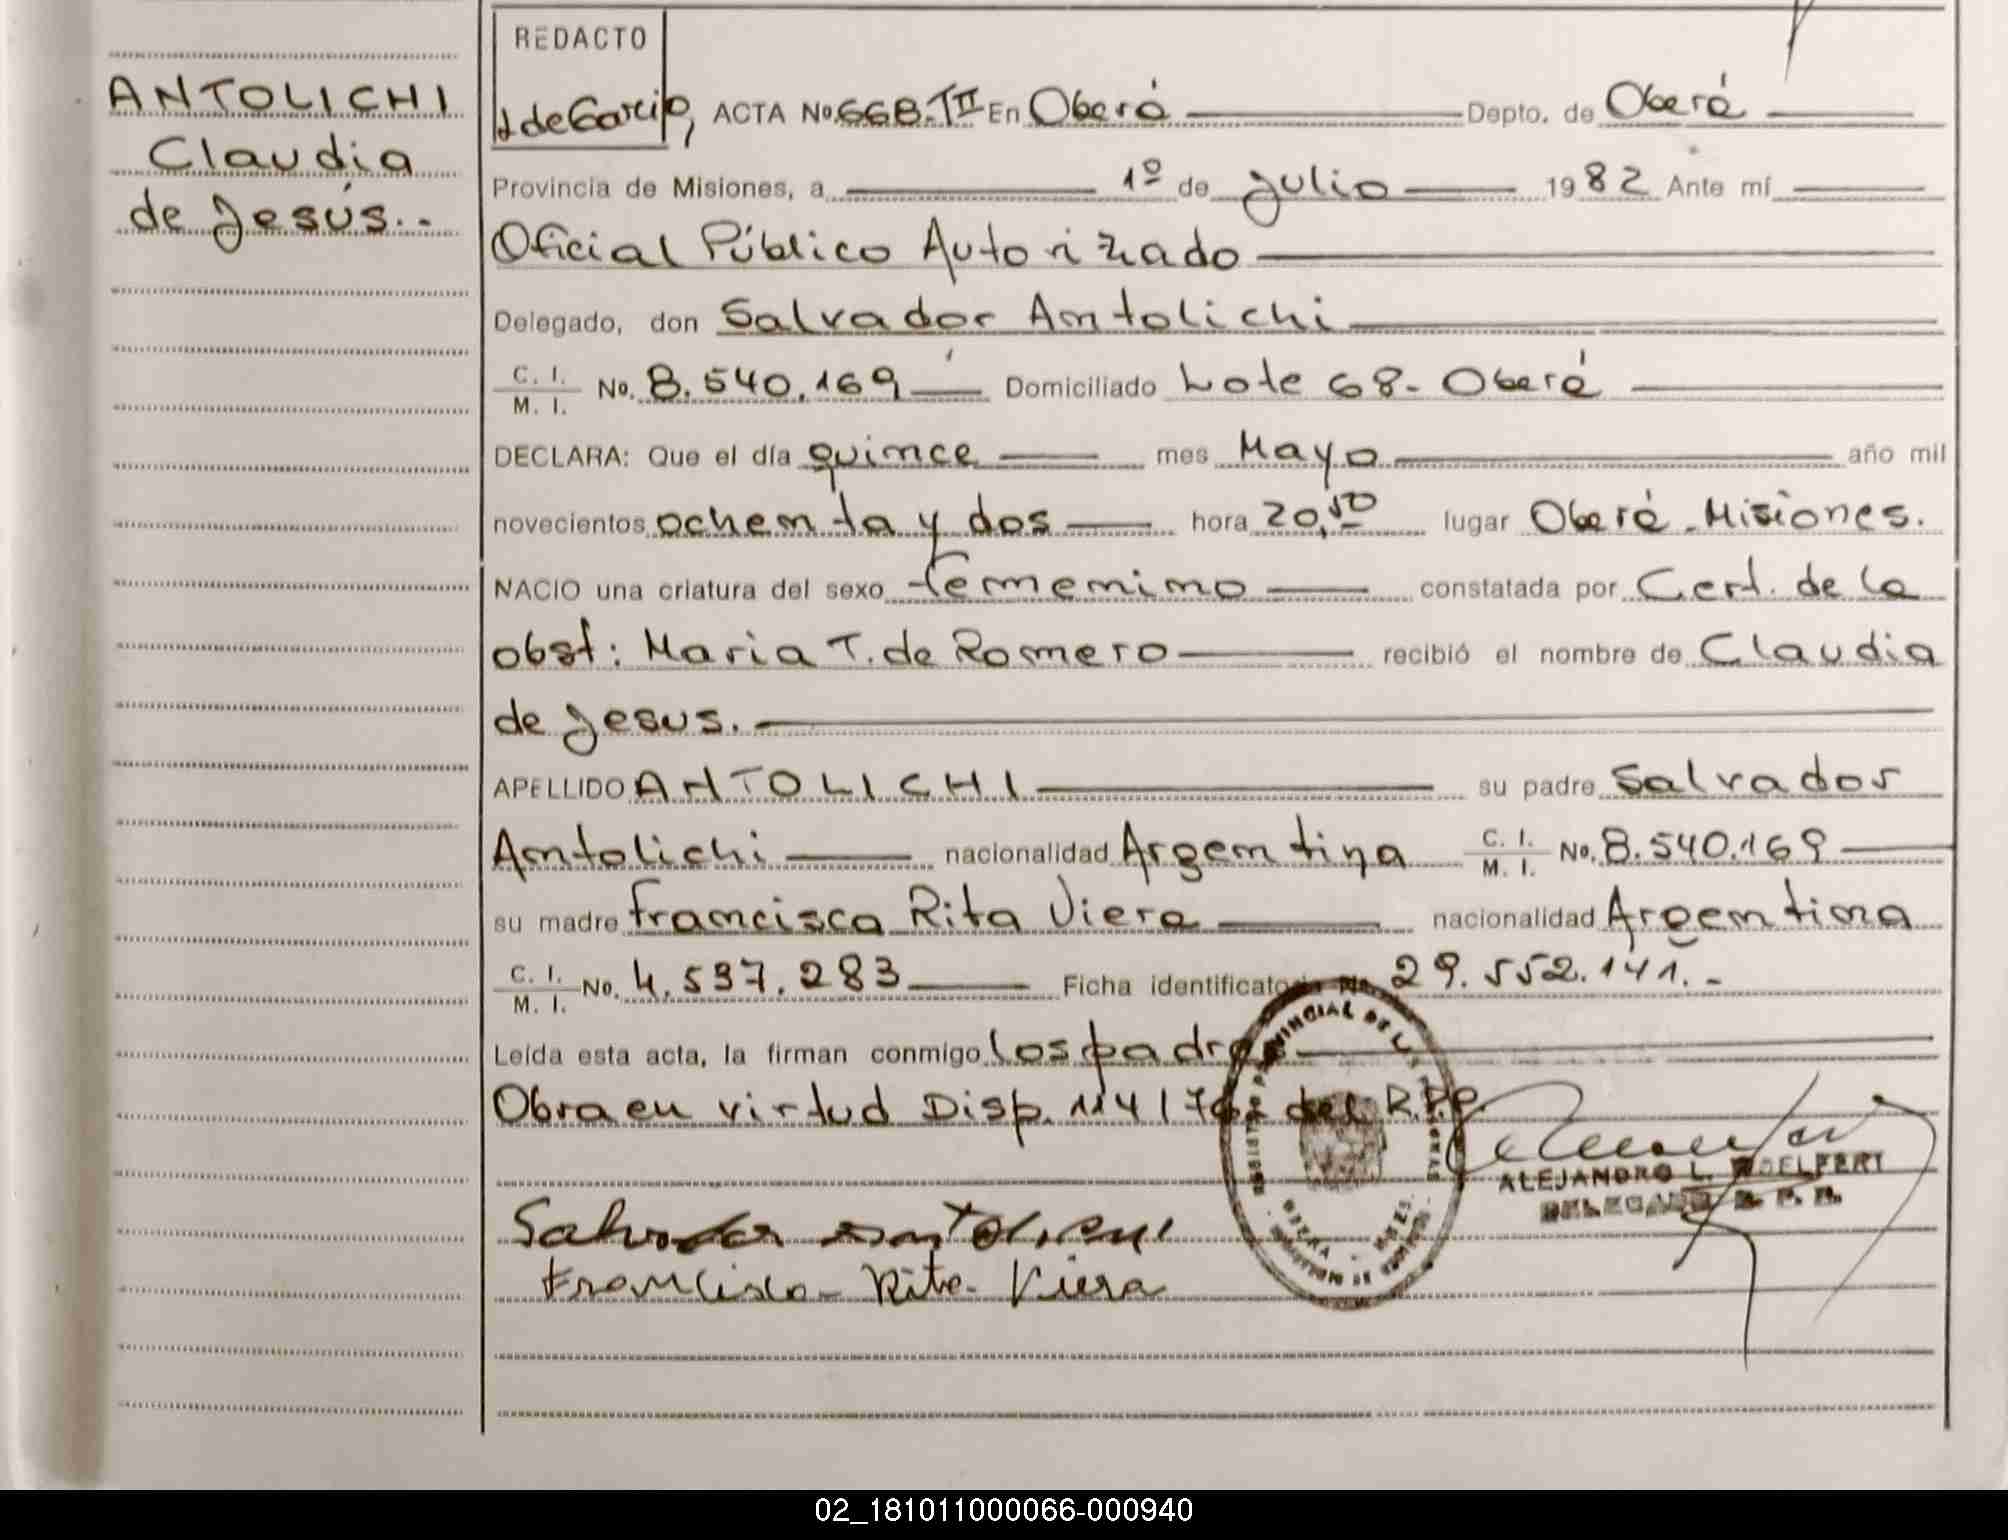 ANTOLICHI
Claudia
de Jesús.-
REDACTO
ACTA No. 668. TII En Oberá Depto. de Oberá
Provincia de Misiones, a 1º de julio 1982 Ante mí
Oficial Público Autorizado
Delegado, don Salvador Antolichi
C. I. / M. I. No. 8.540.169 Domiciliado Lote 68- Oberá
DECLARA: Que el día quince mes Mayo año mil
novecientos ochenta y dos hora 20,50 lugar Oberá - Misiones.
NACIO una criatura del sexo femenino constatada por Cert. de la
obst: Maria T. de Romero recibió el nombre de Claudia
de Jesus.
APELLIDO ANTOLICHI su padre Salvador
Antolichi nacionalidad Argentina C. I. / M. I. No. 8.540.169
su madre Francisca Rita Viera nacionalidad Argentina
C. I. / M. I. No. 4.597.283 Ficha identificatoria No. 29.552.141.-
Leída esta acta, la firman conmigo los padres
Obra en virtud Disp. 114/ del R.P.P.
ALEJANDRO L.
DELEGADO R. P. P.
Salvador Antolichi
Francisca - Rita - Viera
02_181011000066-000940